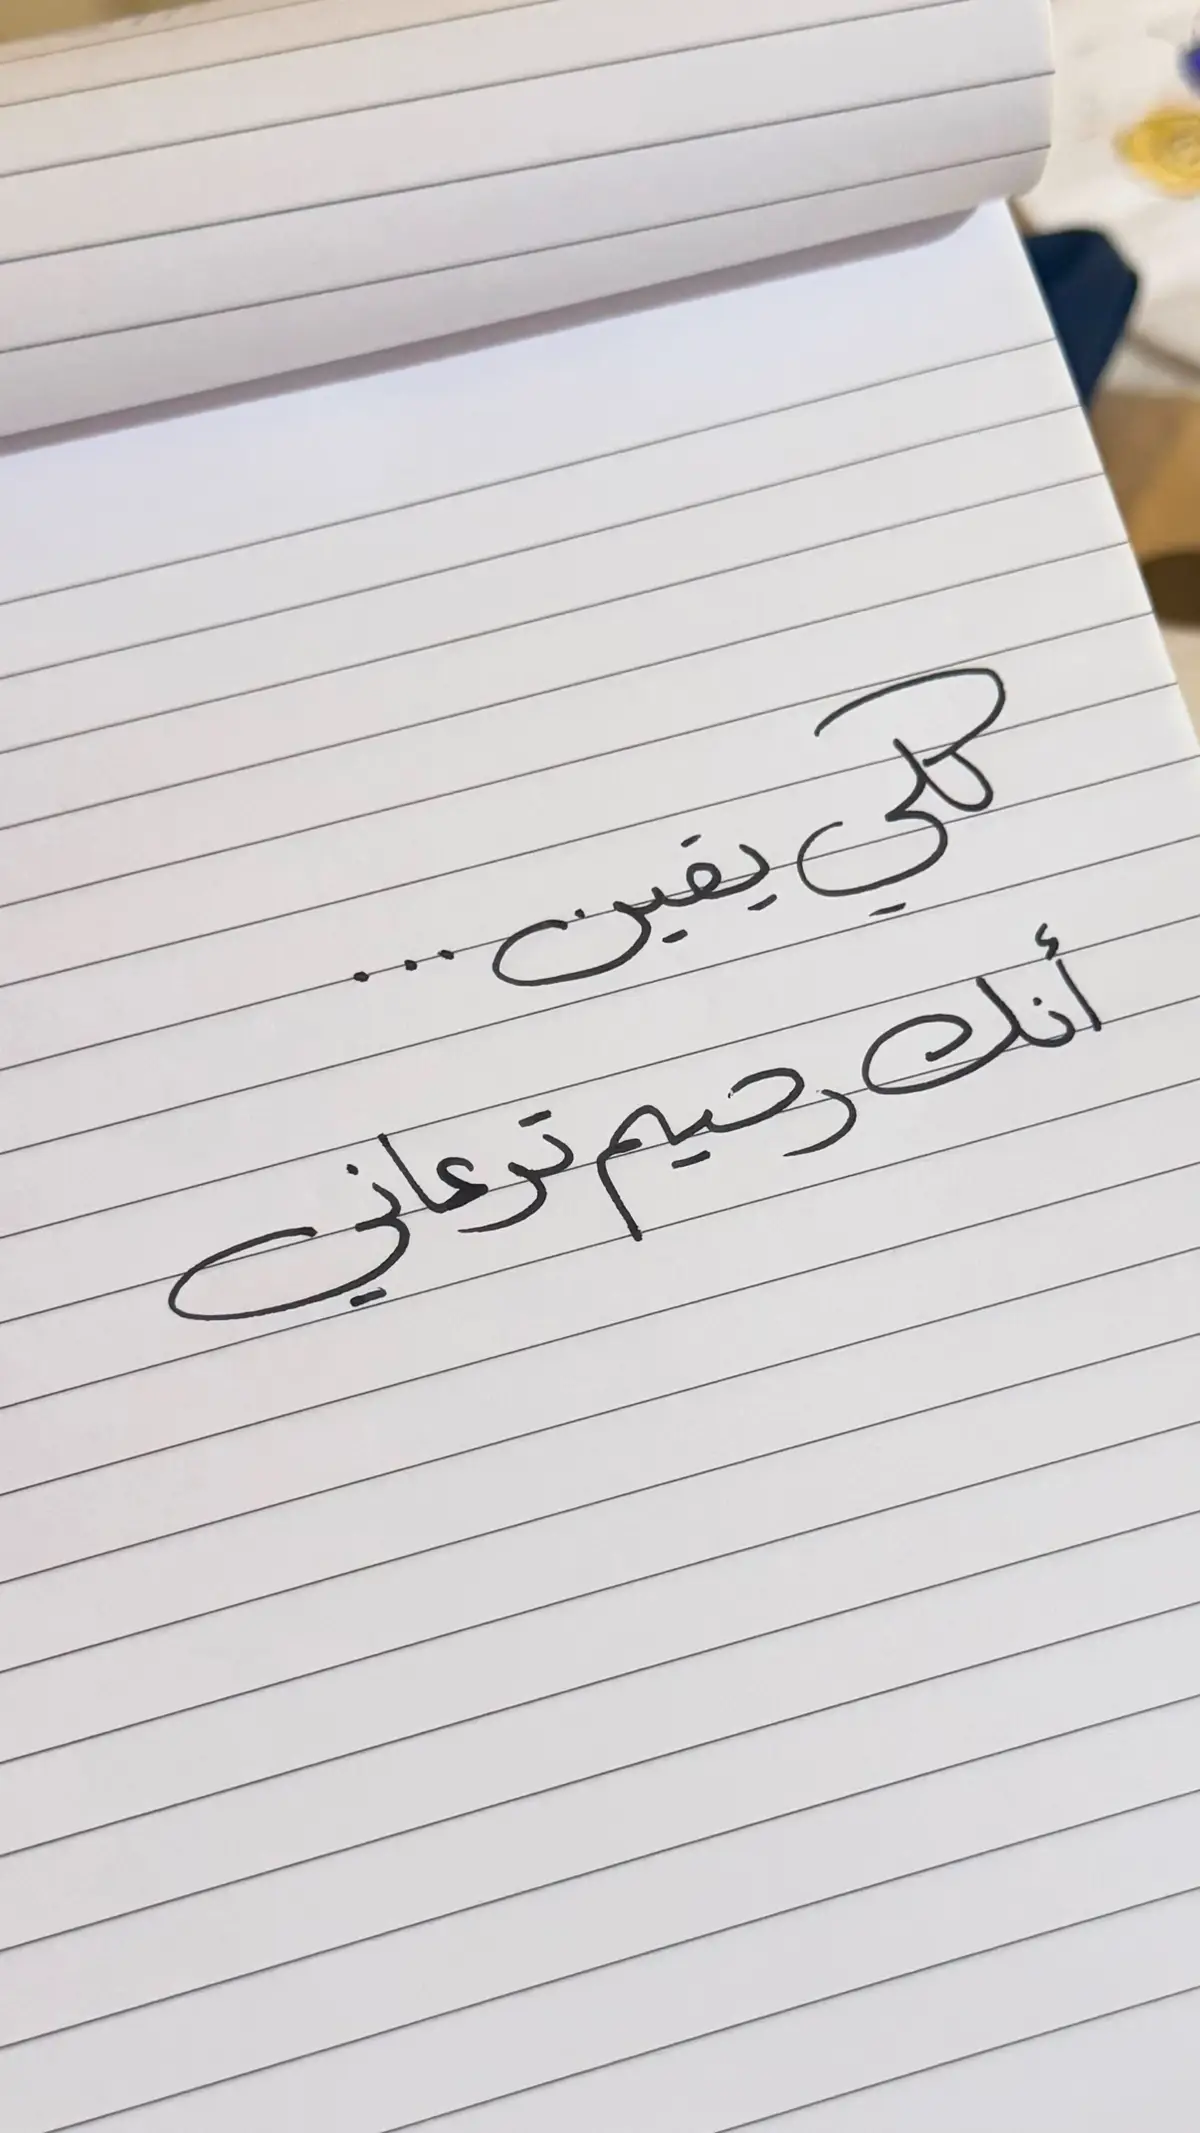 كلي يقين...
أنك رحيم ترعاني